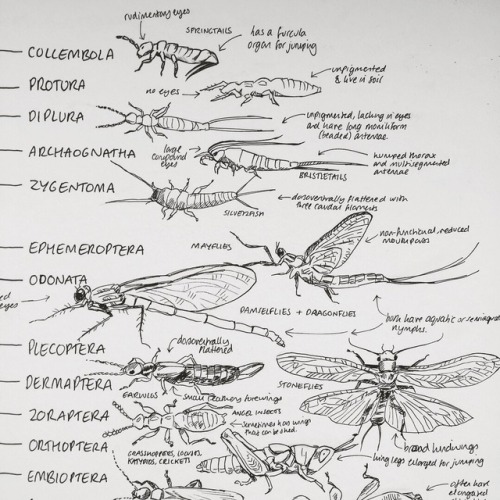 rudimentary eyes
SPRINGTAILS
has a furcula
organ for jumping
COLLEMBOLA
unpigmented
& live in soil
PROTURA
no eyes
DIPLURA
unpigmented, lacking in eyes
and have long moniliform
(beaded) antennae.
ARCHAEOGNATHA
large
compound
eyes
humped thorax
and multisegmented
antennae
BRISTLETAILS
ZYGENTOMA
dorsoventrally flattened with
three caudal filaments
SILVERFISH
EPHEMEROPTERA
MAYFLIES
non-functional, reduced
mouthparts
ODONATA
eyes
DAMSELFLIES + DRAGONFLIES
both have aquatic or
nymphs.
PLECOPTERA
dorsoventrally
flattened
DERMAPTERA
EARWIGS
small leathery forewings
STONEFLIES
ZORAPTERA
ANGEL INSECTS
sometimes has wings
that can be shed.
ORTHOPTERA
GRASSHOPPERS, LOCUSTS,
KATYDIDS, CRICKETS
broad hindwings
long legs enlarged for jumping
EMBIOPTERA
often have
elongated